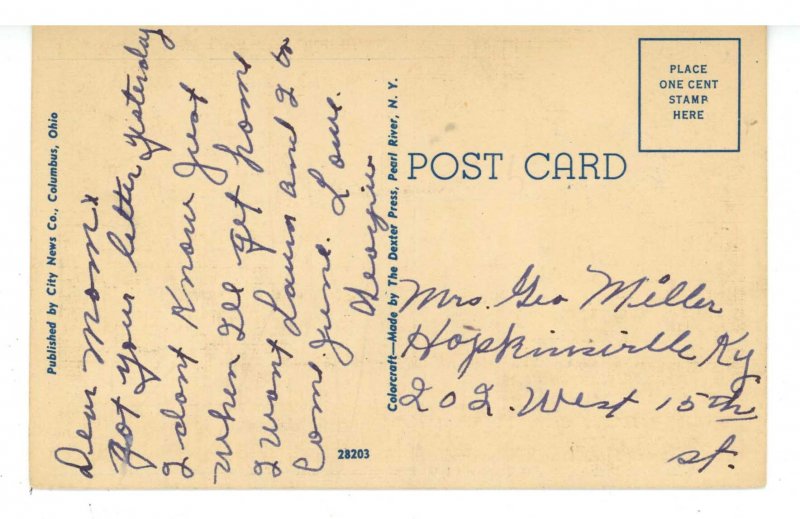 Published by City News Co., Columbus, Ohio
Dear Mom:
Got your letter yesterday
I dont Know Just
When Ill get home
I want Laura and I to
Come June. Love.
28203
Colorcraft—Made by The Dexter Press, Pearl River, N. Y.
PLACE
ONE CENT
STAMP
HERE
POST CARD
Mrs. Geo Miller
Hopkinsville Ky
202. West 15th
st.